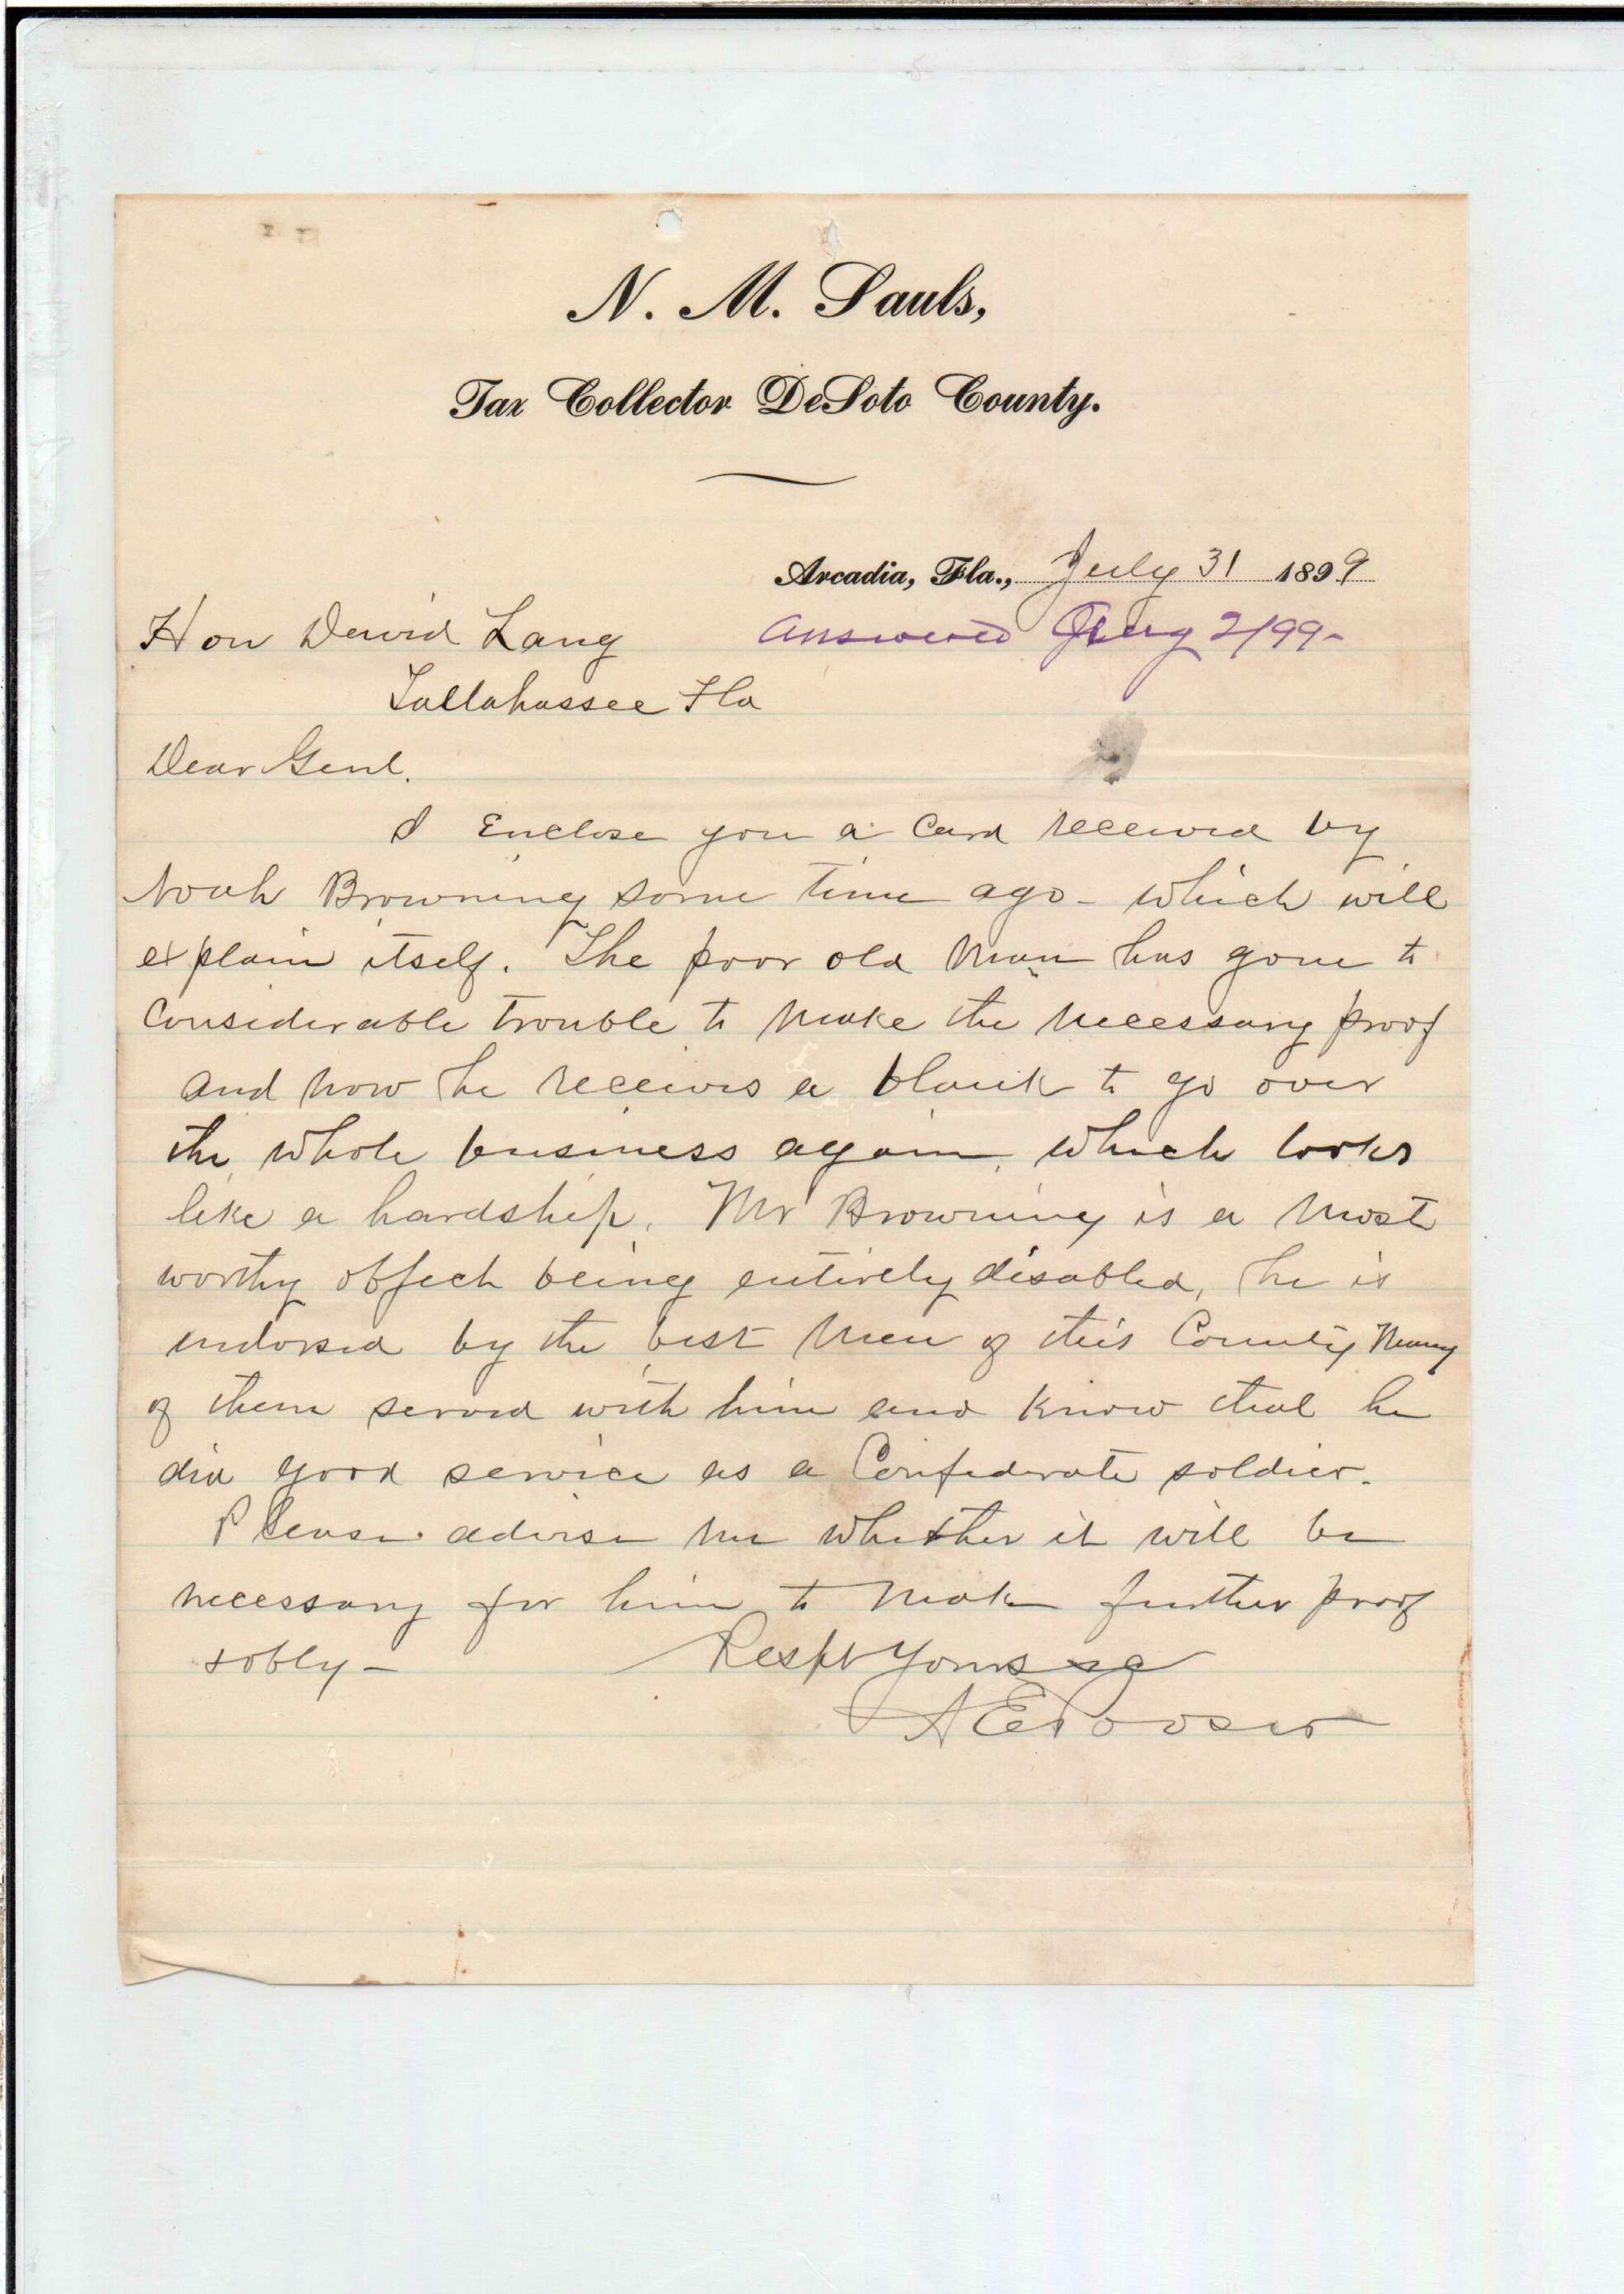 N. M. Sauls,
Tax Collector DeSoto County.
Arcadia, Fla., July 31 1899
Hon David Lang
answered Aug 2/99-
Tallahassee Fla
Dear Genl.
I Enclose you a Card received by
Noah Browning some time ago - which will
explain itself. The poor old man has gone to
Considerable trouble to make the necessary proof
and now he receives a blank to go over
the whole business again, which looks
like a hardship. Mr Browning is a most
worthy object being entirely disabled, he is
endorsed by the best men of this County many
of them served with him and know that he
did good service as a Confederate soldier.
Please advise me whether it will be
necessary for him to make further proof
Respt Yours
A E Pooser